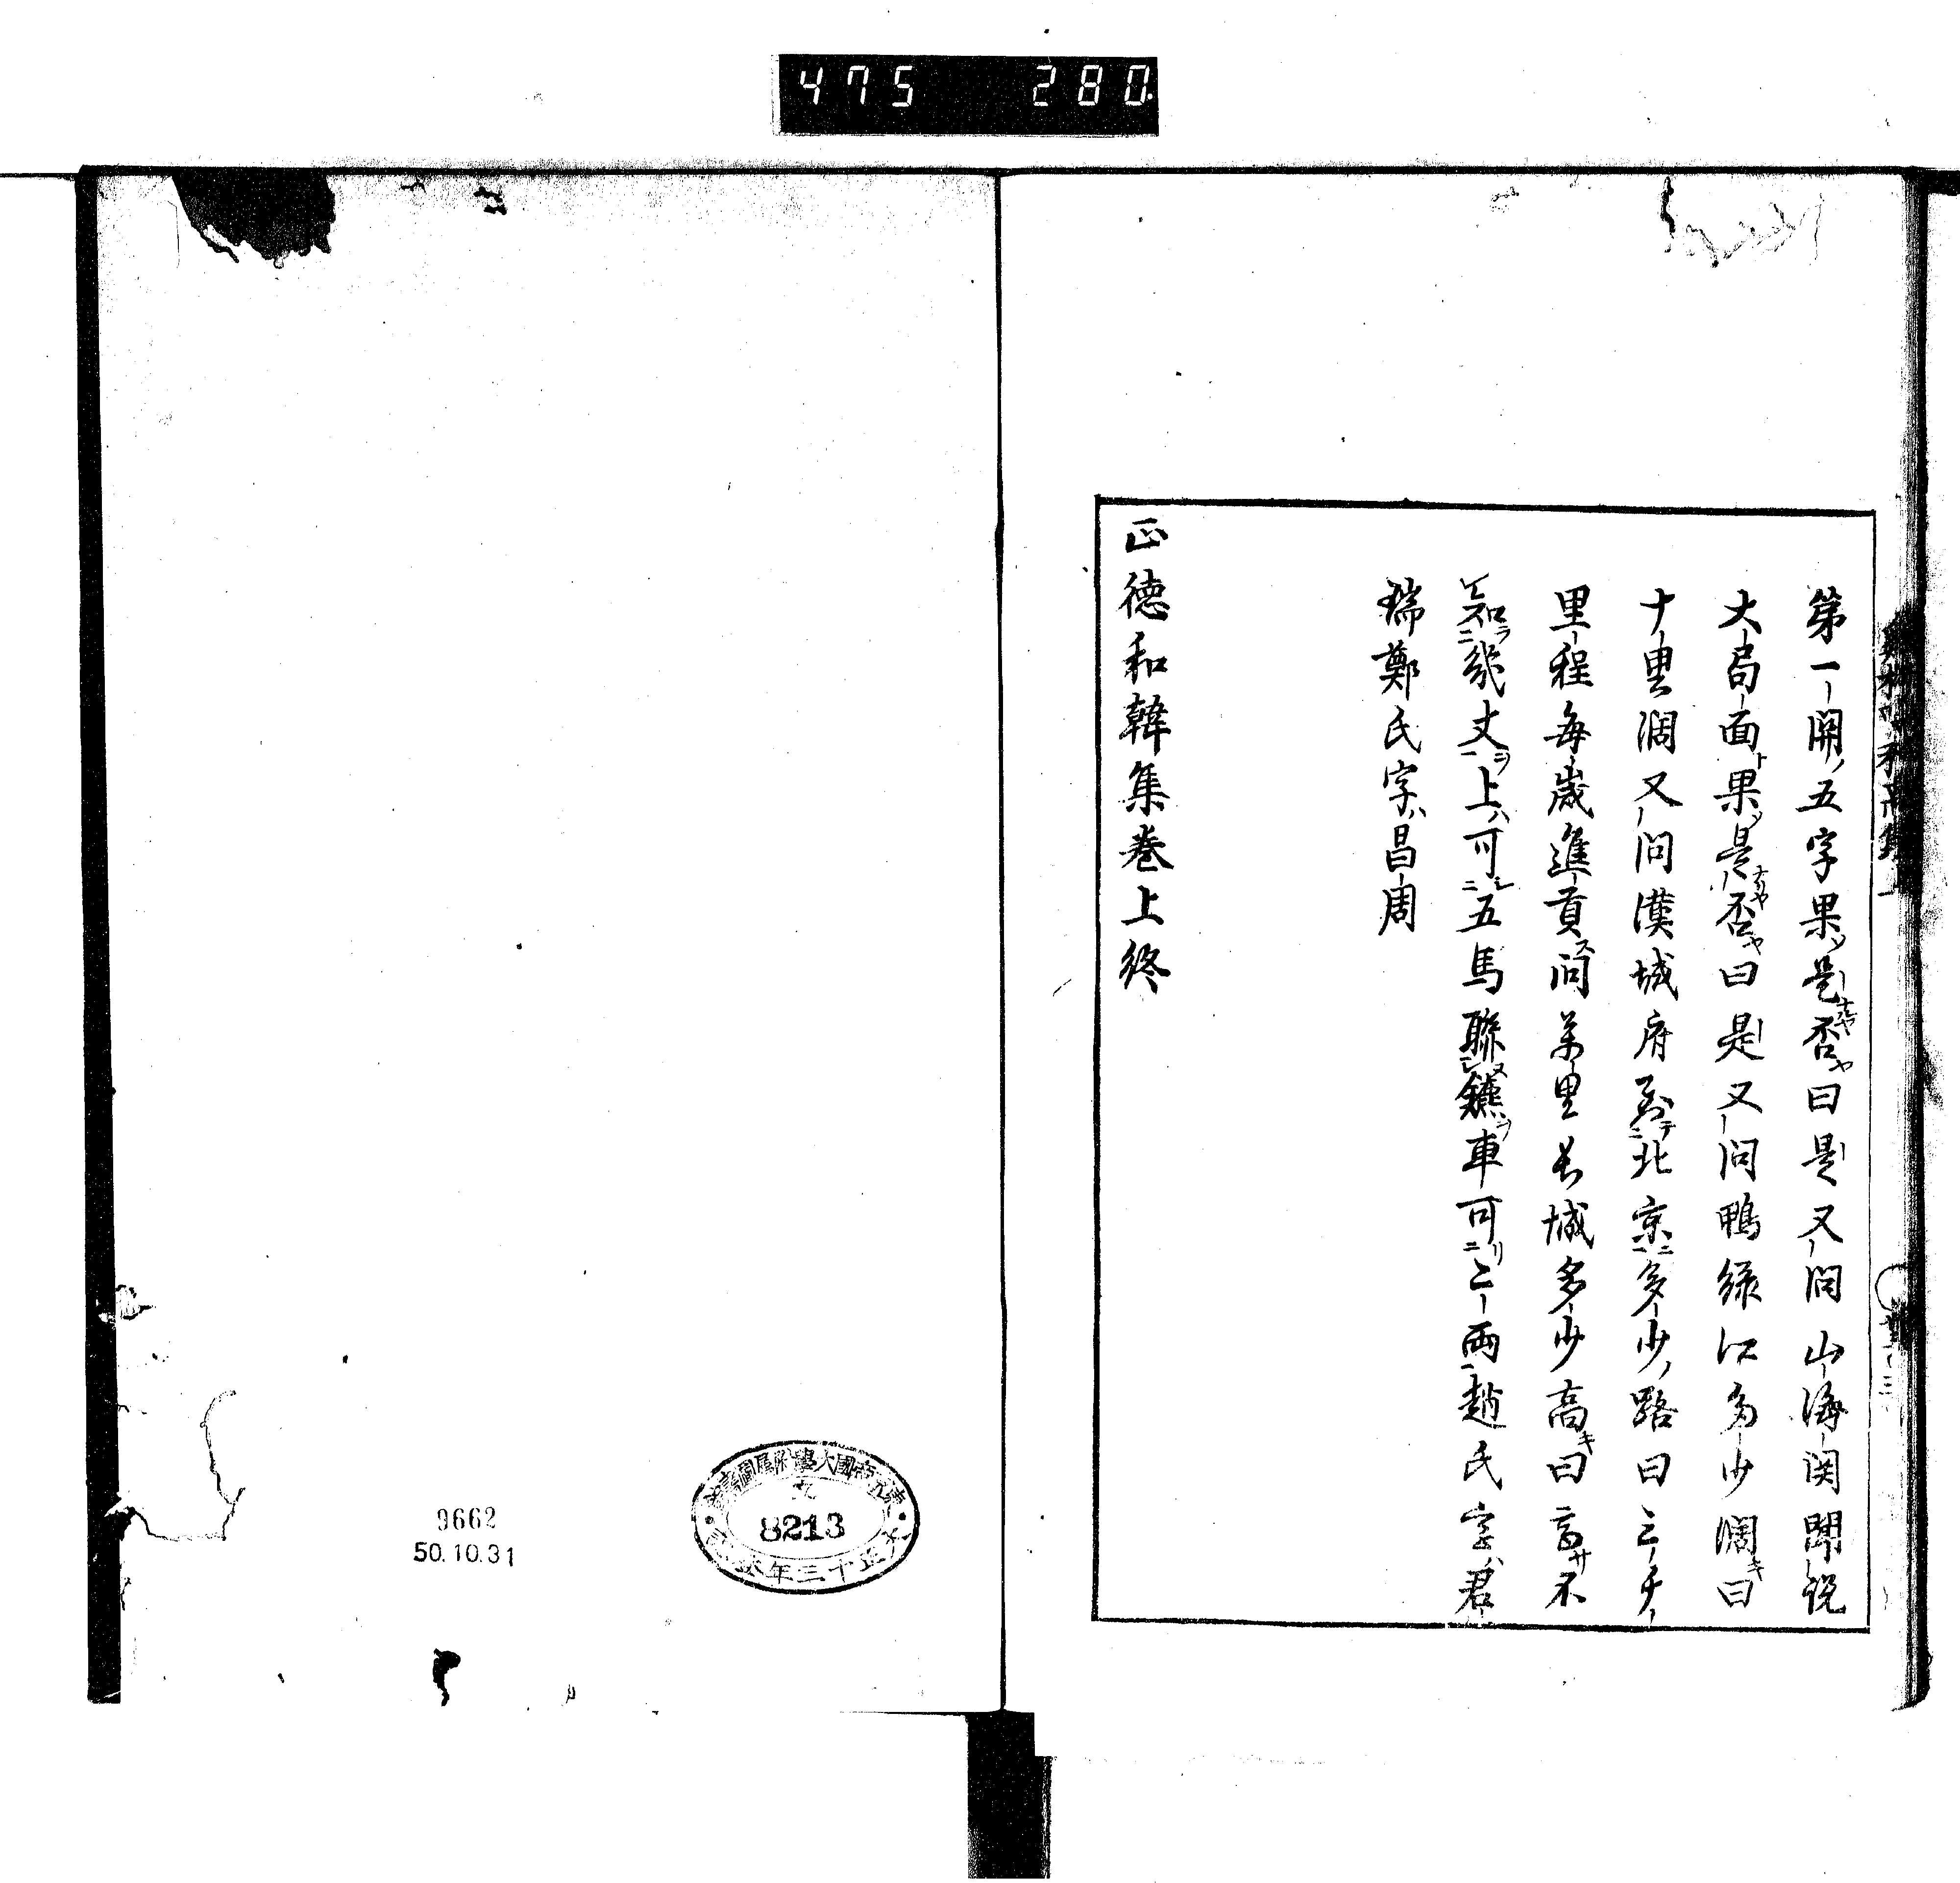 475 280
第一開五字果是否曰是又問山海関聞説
大局面果是否曰是又問鴨緑江多少濶曰
十里濶又問漢城府到北京多少路曰三千
里程毎歳進貢問萬里長城多少高曰高不
知幾丈上可五馬聯鑣車可二両趙氏字君
瑞鄭氏字昌周
正徳和韓集巻上終
8213
9662
50.10.31